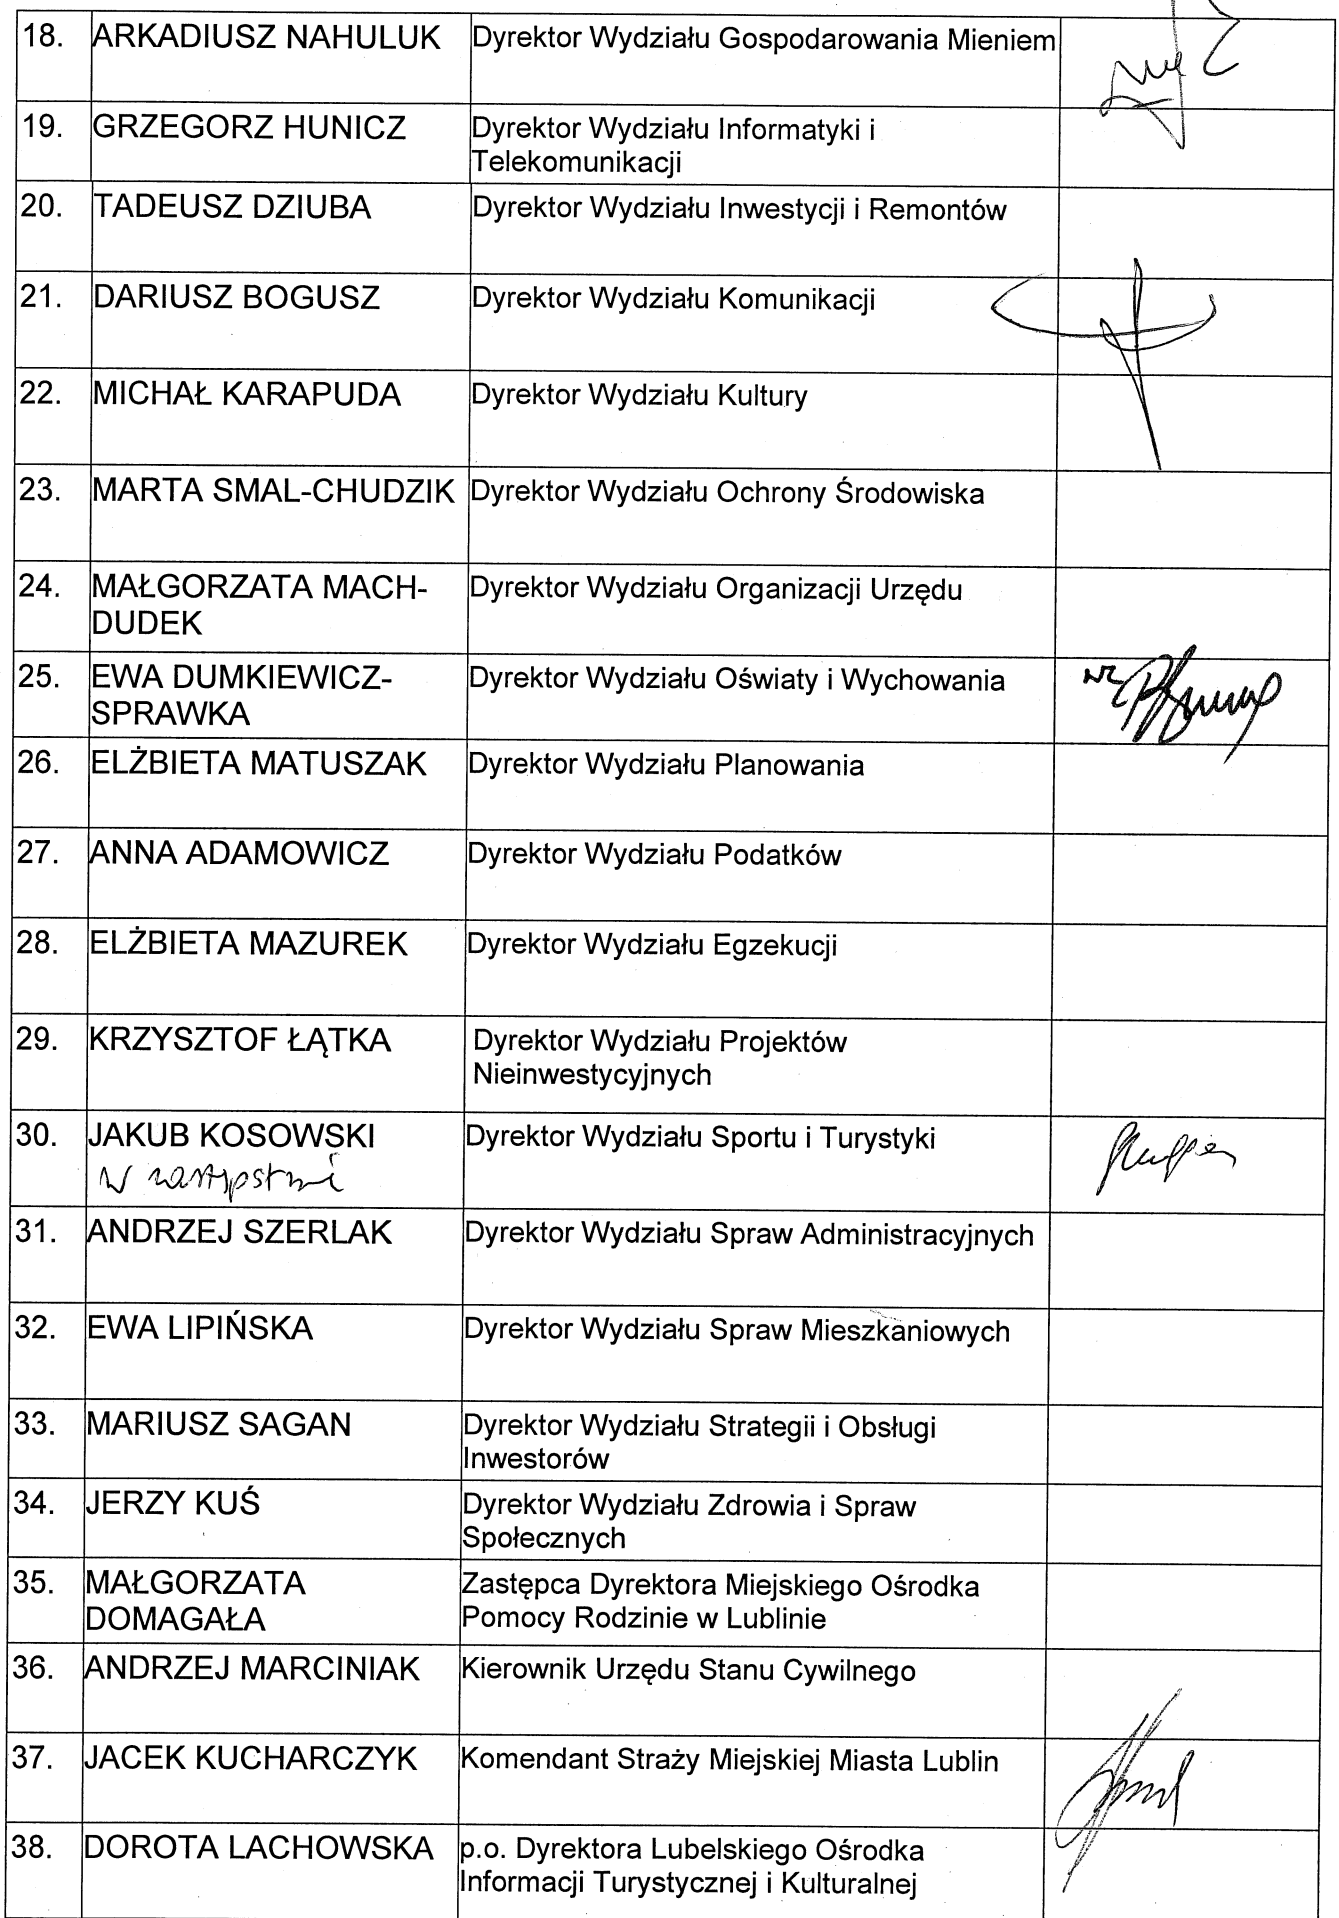 18. ARKADIUSZ NAHULUK Dyrektor Wydziału Gospodarowania Mieniem
19. GRZEGORZ HUNICZ Dyrektor Wydziału Informatyki i
Telekomunikacji
20. TADEUSZ DZIUBA Dyrektor Wydziału Inwestycji i Remontów
21. DARIUSZ BOGUSZ Dyrektor Wydziału Komunikacji
22. MICHAŁ KARAPUDA Dyrektor Wydziału Kultury
23. MARTA SMAL-CHUDZIK Dyrektor Wydziału Ochrony Środowiska
24. MAŁGORZATA MACH- Dyrektor Wydziału Organizacji Urzędu
DUDEK
25. EWA DUMKIEWICZ- Dyrektor Wydziału Oświaty i Wychowania
SPRAWKA
26. ELŻBIETA MATUSZAK Dyrektor Wydziału Planowania
27. ANNA ADAMOWICZ Dyrektor Wydziału Podatków
28. ELŻBIETA MAZUREK Dyrektor Wydziału Egzekucji
29. KRZYSZTOF ŁĄTKA Dyrektor Wydziału Projektów
Nieinwestycyjnych
30. JAKUB KOSOWSKI Dyrektor Wydziału Sportu i Turystyki
W zastępstwie
31. ANDRZEJ SZERLAK Dyrektor Wydziału Spraw Administracyjnych
32. EWA LIPIŃSKA Dyrektor Wydziału Spraw Mieszkaniowych
33. MARIUSZ SAGAN Dyrektor Wydziału Strategii i Obsługi
Inwestorów
34. JERZY KUŚ Dyrektor Wydziału Zdrowia i Spraw
Społecznych
35. MAŁGORZATA Zastępca Dyrektora Miejskiego Ośrodka
DOMAGAŁA Pomocy Rodzinie w Lublinie
36. ANDRZEJ MARCINIAK Kierownik Urzędu Stanu Cywilnego
37. JACEK KUCHARCZYK Komendant Straży Miejskiej Miasta Lublin
38. DOROTA LACHOWSKA p.o. Dyrektora Lubelskiego Ośrodka
Informacji Turystycznej i Kulturalnej